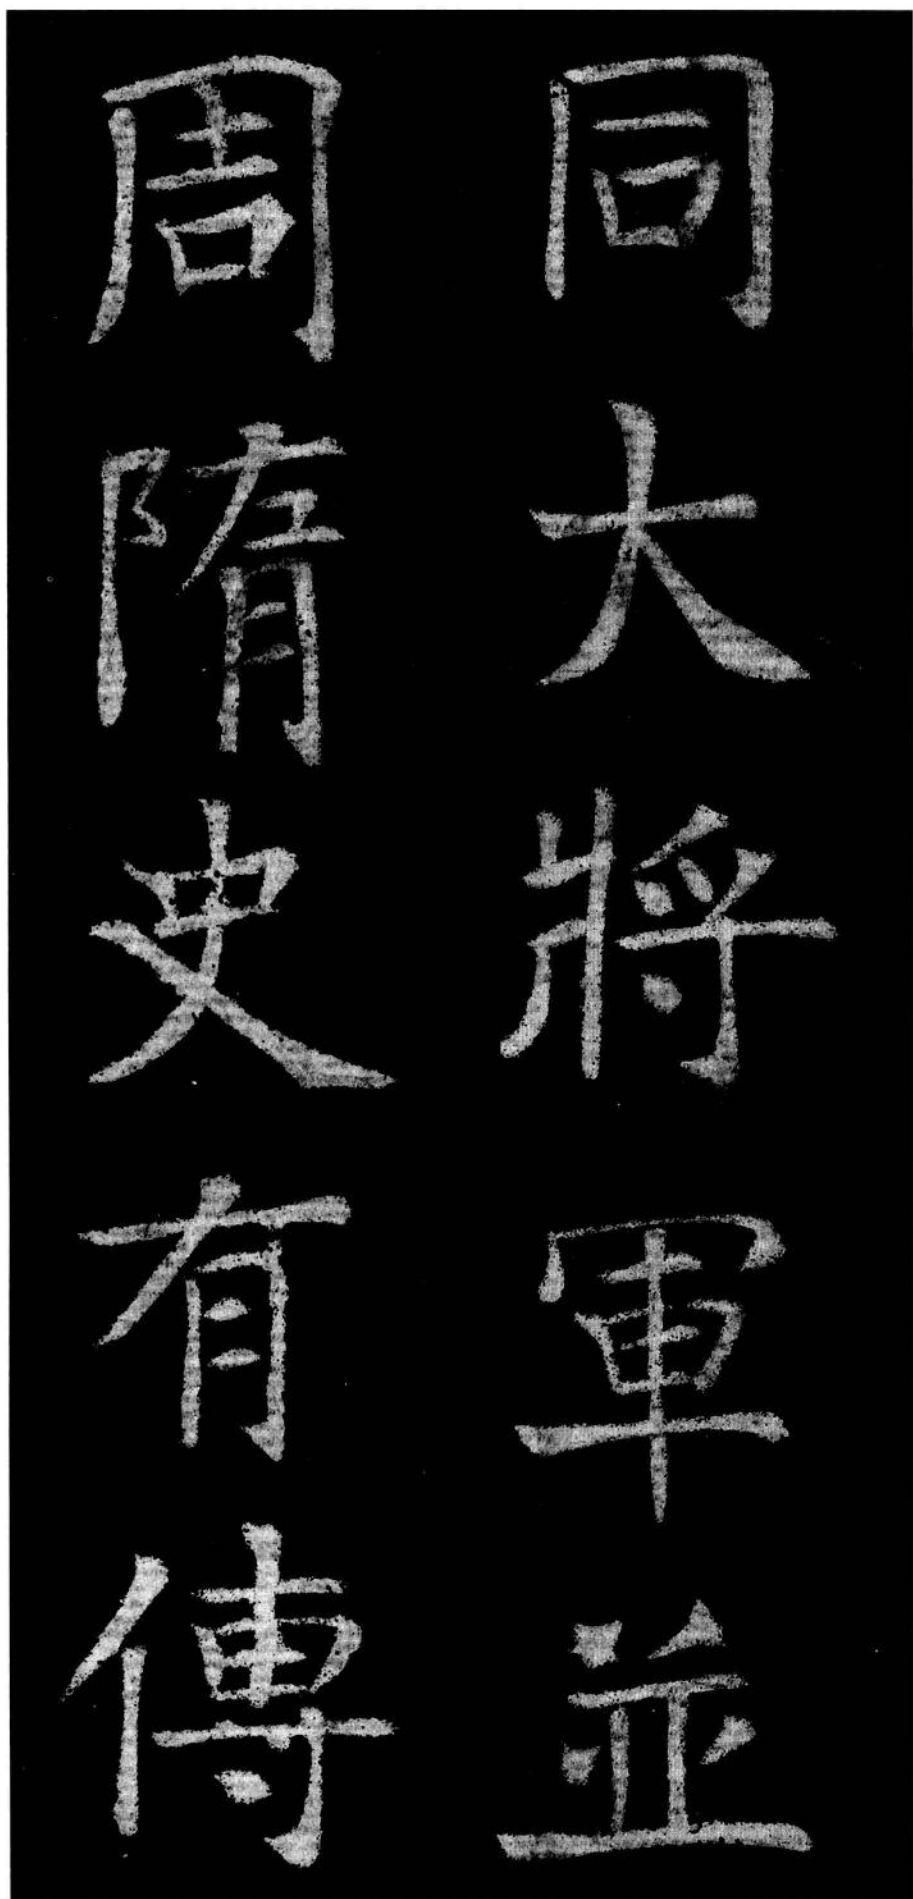 同大將軍並
周隋史有傳